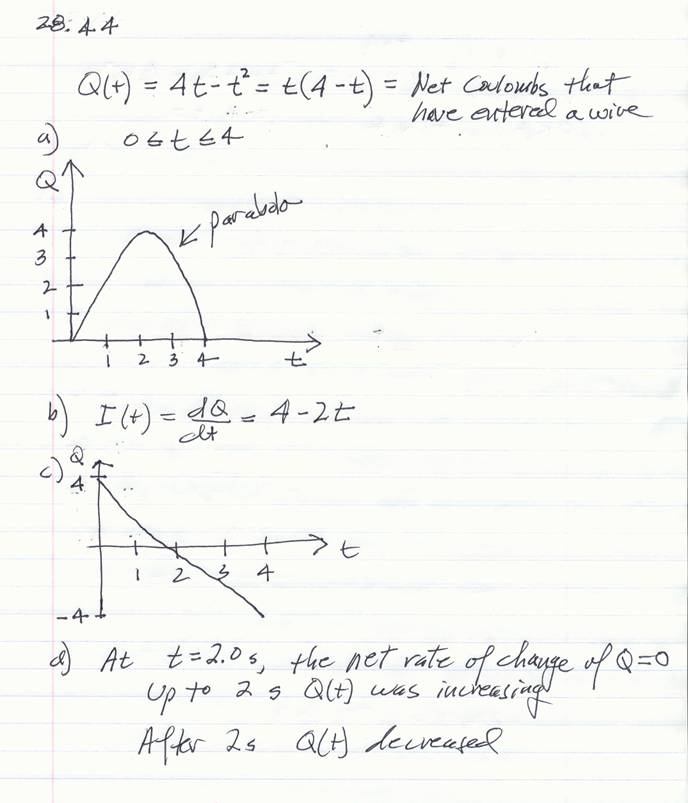 28.44
Q(t) = 4t - t² = t(4-t) = Net Coulombs that
have entered a wire
a) 0 ≤ t ≤ 4
Q
parabola
4
3
2
1
1 2 3 4 t
b) I(t) = dQ/dt = 4 - 2t
c) Q
4
t
1 2 3 4
-4
d) At t = 2.0 s, the net rate of change of Q = 0
Up to 2 s Q(t) was increasing
After 2s Q(t) decreased